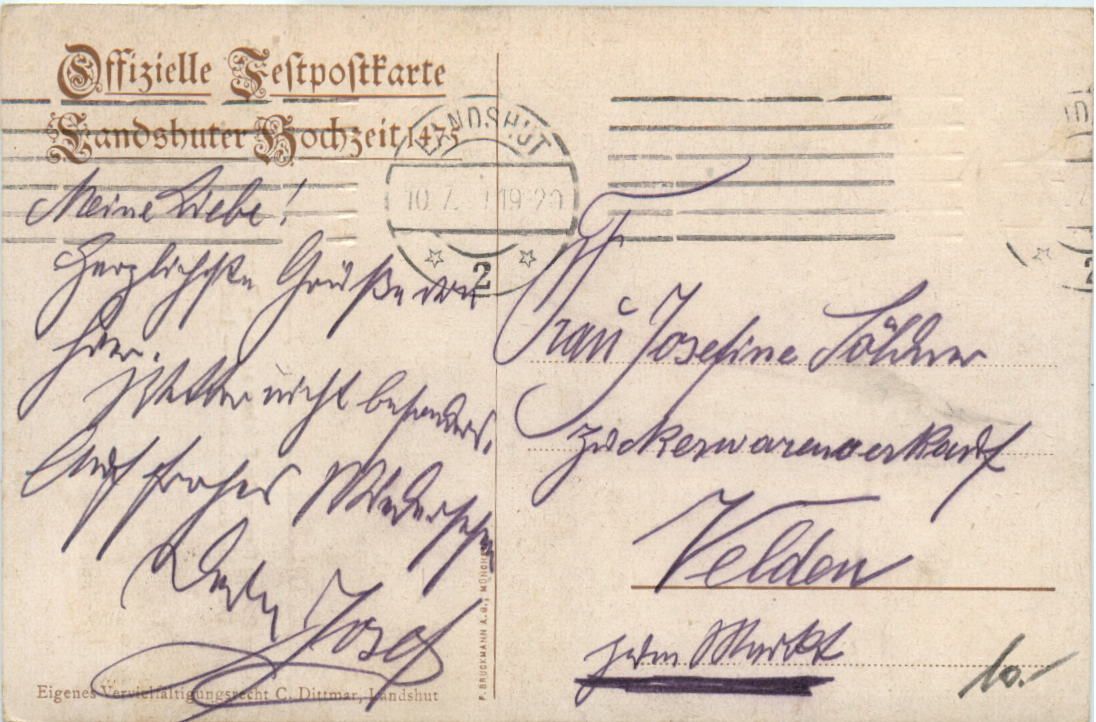 Offizielle Festpostkarte
Landshuter Hochzeit 1475
LANDSHUT
10 7 19-20
2
Meine Liebe!
Herzlichste Grüße von
hier.
Wetter nicht besonders.
Auf frohes Wiedersehen
Dein Josef
Frau Josefine Söldner
Zuckerwarenverkauf
Velden
zum Markt
10.-
F. BRUCKMANN A.G., MÜNCHEN
Eigenes Vervielfältigungsrecht C. Dittmar, Landshut